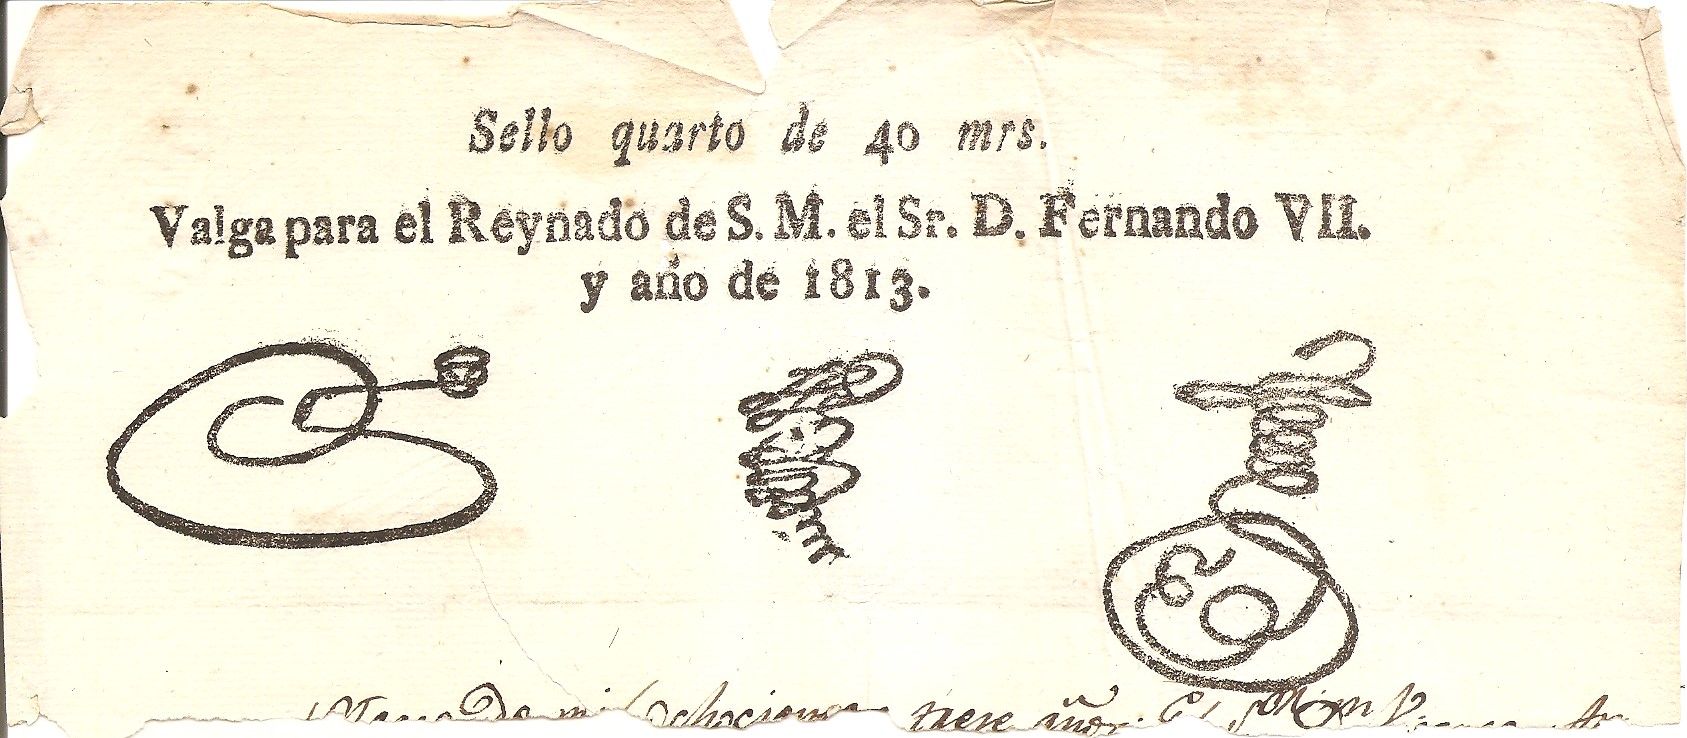 Sello quarto de 40 mrs.
Valga para el Reynado de S. M. el Sr. D. Fernando VII.
y año de 1813.
De mil ochocien trese años